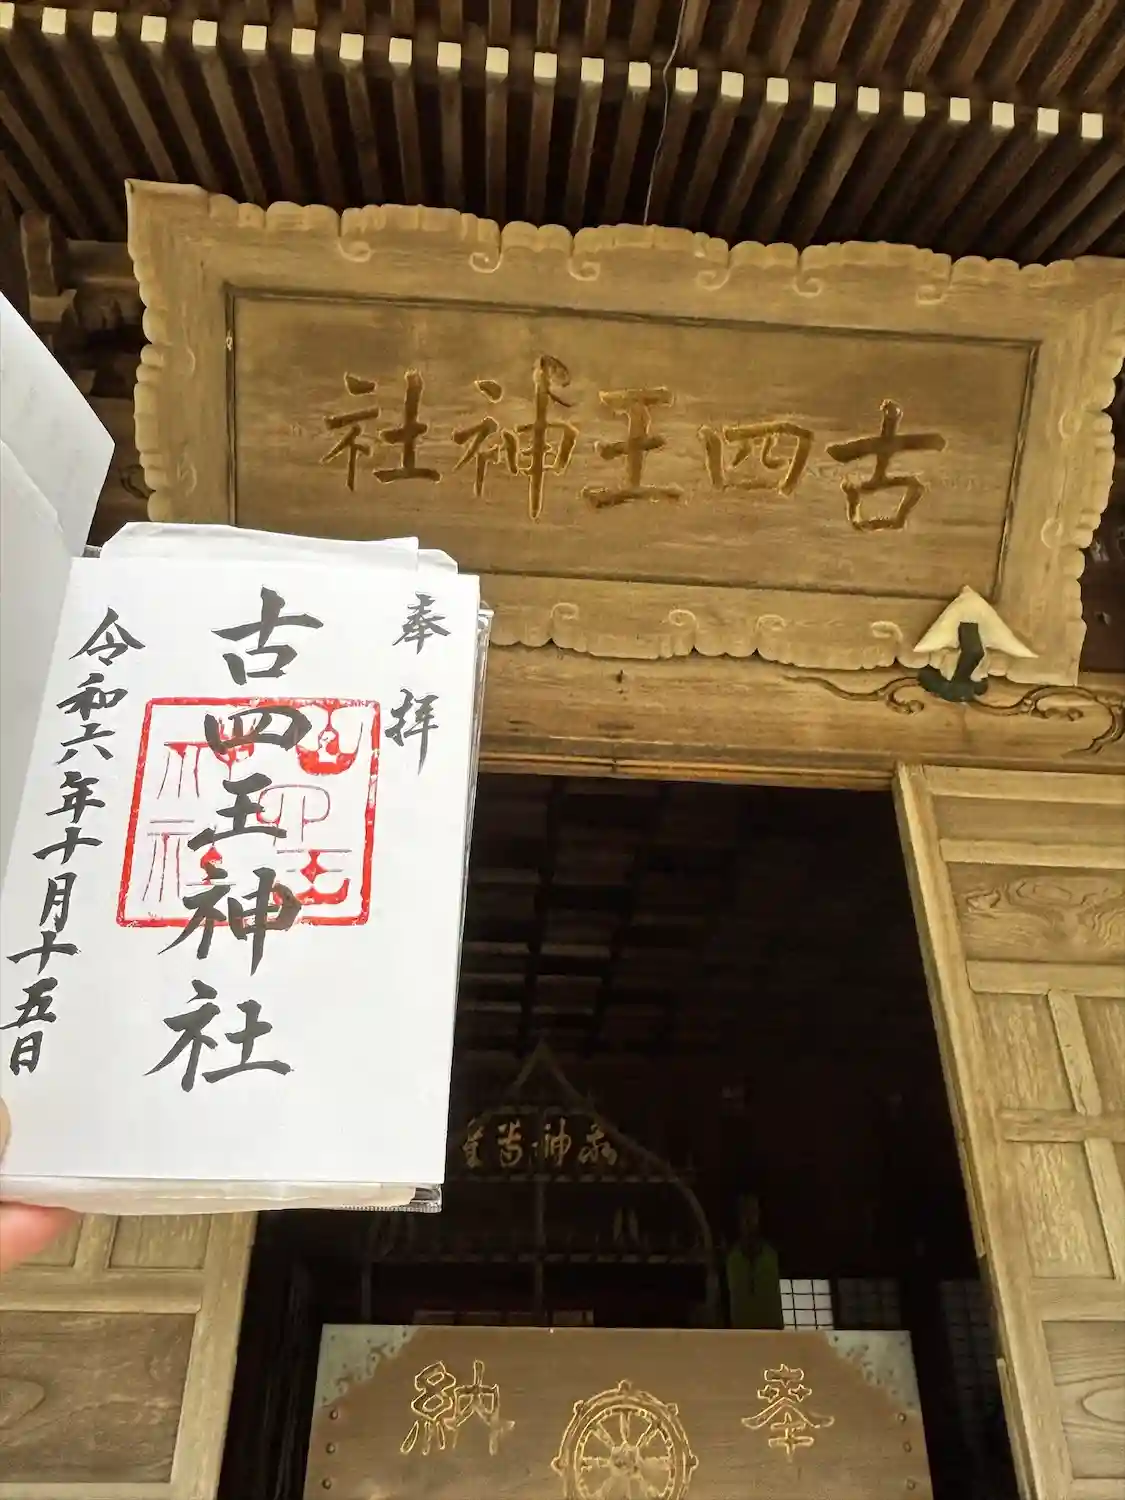 古四王神社
奉拝
古四王神社
令和六年十月十五日
奉納